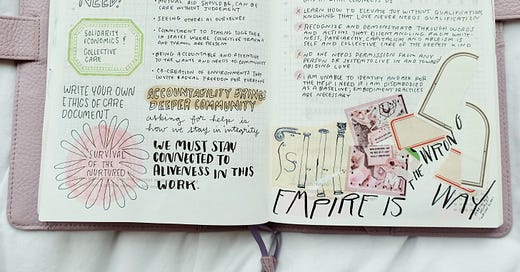 NEED!
SOLIDARITY
ECONOMIES &
COLLECTIVE
CARE
WRITE YOUR OWN
ETHICS OF CARE
DOCUMENT
SURVIVAL
OF THE
NURTURED
• MUTUAL AID SHOULD BE, CAN BE
CARE WITHOUT JUDGEMENT
• SEEING OTHERS AS OURSELVES
• COMMITMENT TO STAYING TOGETHER
IN SPACES WHERE COLLECTIVE TRAUMA
AND TURMOIL ARE PRESENT
• BEING ACCOUNTABLE AND ATTENTIVE
TO THE WANTS AND NEEDS OF COMMUNITY
• CO-CREATION OF ENVIRONMENTS THAT
RACIAL FREEDOM FOR EVERYONE
ACCOUNTABILITY BRINGS
DEEPER COMMUNITY
asking for help is
how we stay in integrity
WE MUST STAY
CONNECTED TO
ALIVENESS IN THIS
WORK.
x LEARN HOW TO ELEVATE JOY WITHOUT QUALIFICATION,
KNOWING THAT LOVE NEVER NEEDS QUALIFICATION
x RECOGNIZE AND DEMONSTRATE THROUGH WORDS
AND ACTIONS THAT DISENTANGLING FROM WHITE-
NESS, PATRIARCHY, CAPITALISM, AND ABLEISM IS
SELF AND COLLECTIVE CARE OF THE DEEPEST KIND
x NO ONE NEEDS PERMISSION FROM ANY
PERSON OR SYSTEM TO LIVE IN AND TOWARD
ABIDING LOVE
x I AM UNABLE TO IDENTIFY AND ASK FOR
THE HELP I NEED IF I AM DISEMBODIED
AS A BASELINE; EMBODIMENT PRACTICES
ARE NECESSARY
EMPIRE IS
THE WRONG
WAY